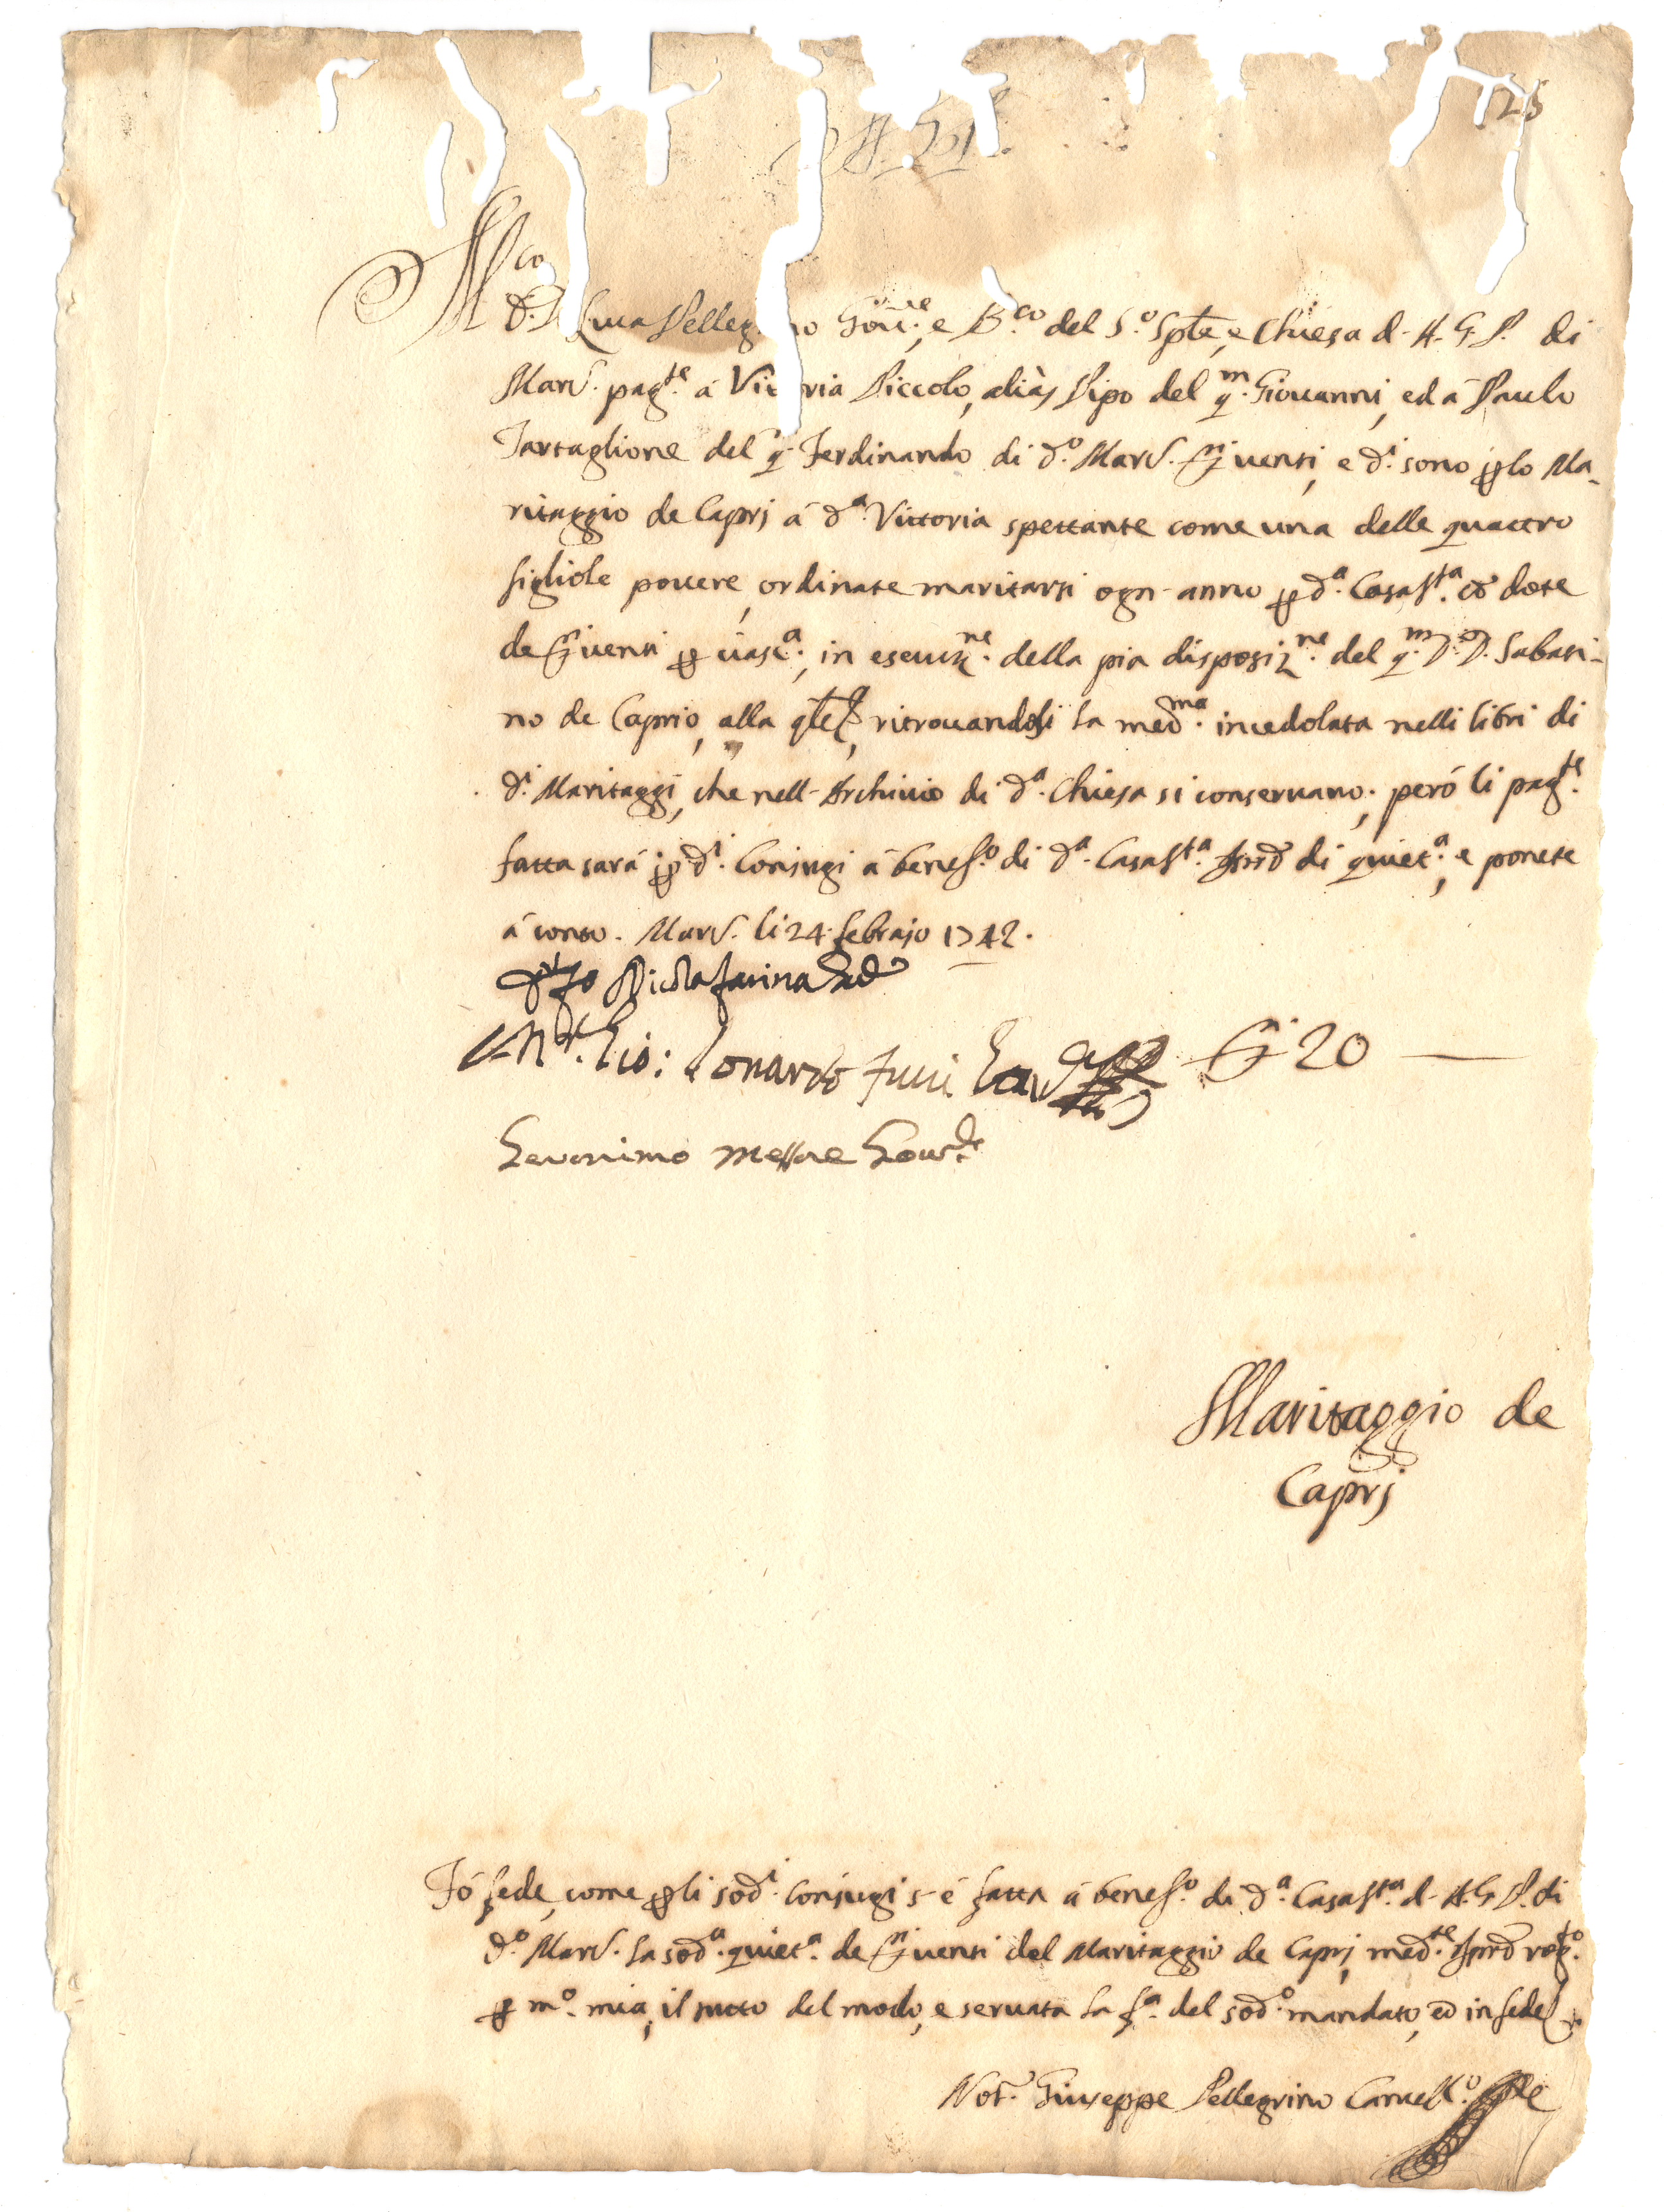 125
M.co
D. Luca Pelleg no Gov.re, e B.co del S.o Sple, e Chiesa d- A. G. P. di
Marc. pag.te á Vit ria Piccolo, aliàs Pipo del q.m Giovanni, ed á Paulo
Tartaglione del q. Ferdinando di d.o Marc. D.ti venti, e d.i sono p lo Ma-
ritaggio de Caprj á d.a Vittoria spettante come una delle quattro
figliole povere, ordinate maritarsi ogn- anno p d.a Casa S.ta co dote
de D.ti venti p cias.a, in esecuz.ne della pia disposiz.ne del q.m D. D. Sabati-
no de Caprio, alla qle &, ritrovandosi la med.ma incedolata nelli libri di
d.i Maritaggi, che nell- Archivio di d.a Chiesa si conservano; peró li pag.te
fatta sará p d.i Conjugi á benef.o di d.a Casa S.ta di quiet.a, e ponete
á conto. Marc. li 24 febrajo 1742.
Nicola farina
Gio: Lonardo D.ti 20
Geronimo Messore Gov.re
Maritaggio de
Caprj
Fó fede, come p li sod.i Conjugi s- é fatta á benef.o di d.a Casa S.ta d- A. G. P. di
d.o Marc. la sod.a quiet.a de D.ti venti del Maritaggio de Caprj, med.te rog.to
p m.o mia, il tutto del modo, e servata la f.a del sod.o mandato, ed in fede
Not. Giuseppe Pellegrino Cancell.o